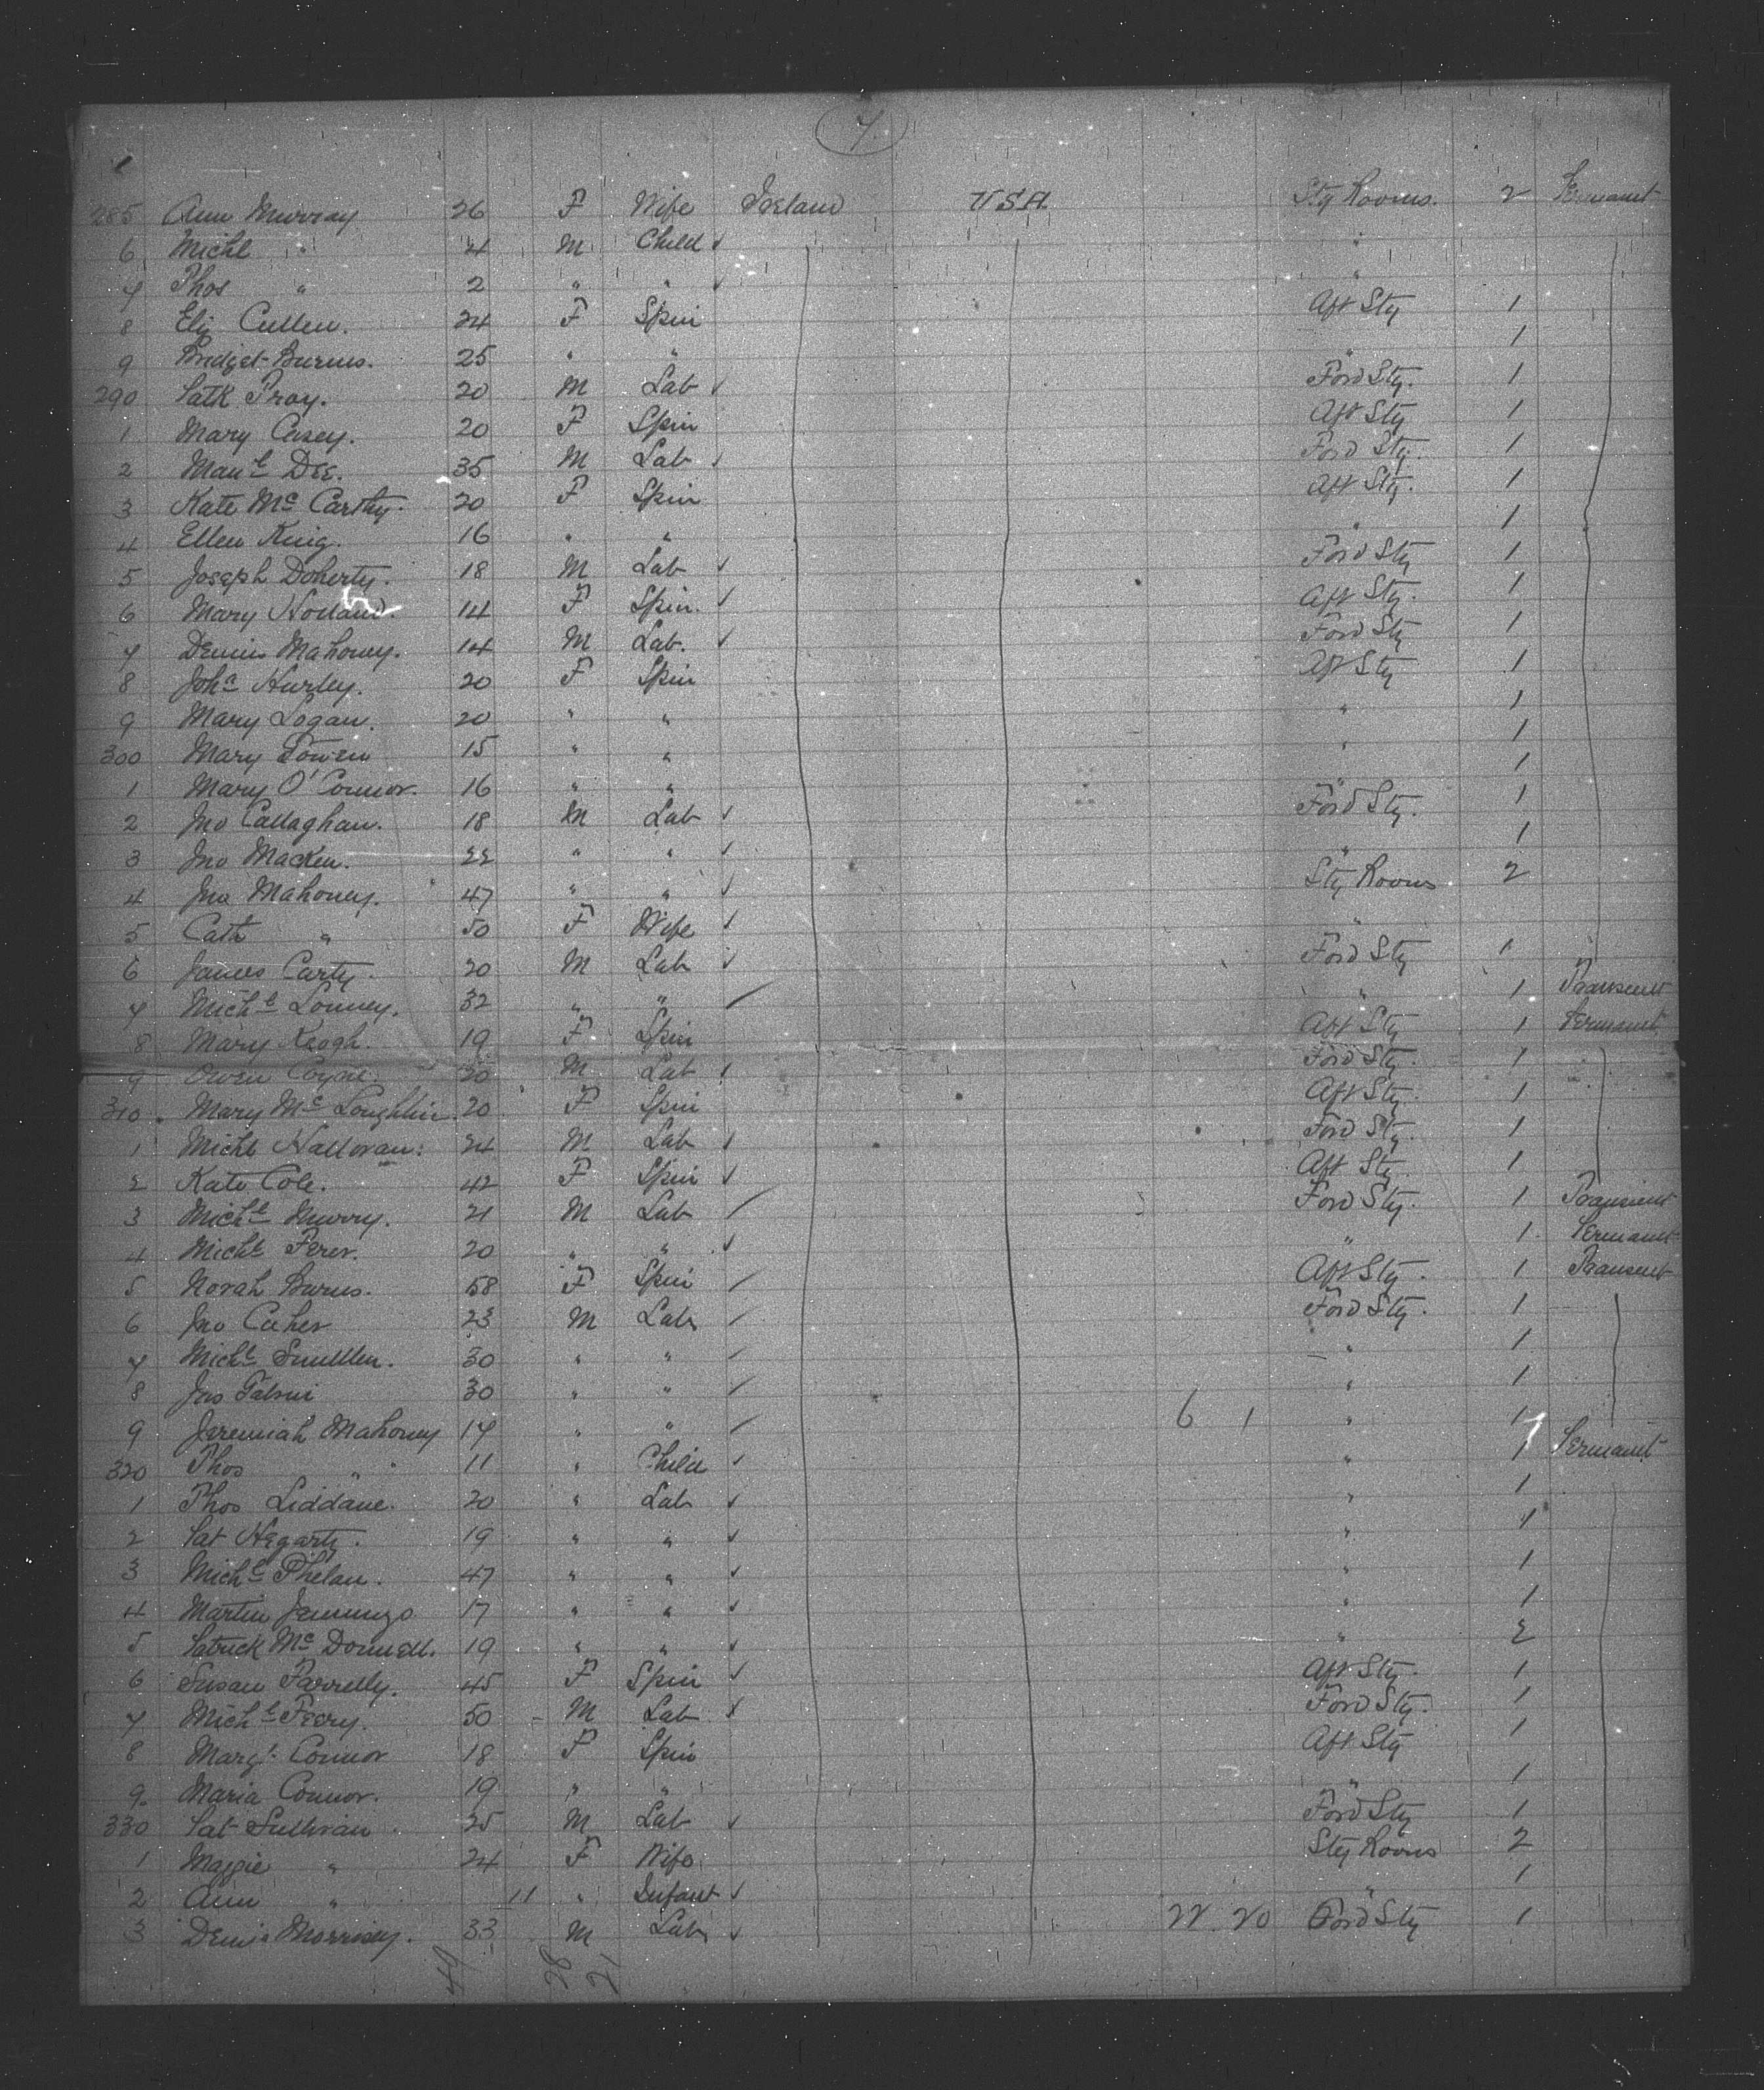 7.
285 Ann Murray 26 F Wife Ireland USA Stg Rooms. 2 Permanent
6 Michl " 4 M Child "
7 Thos " 2 " " "
8 Eliz Cullen. 24 F Spin Aft Stg 1
9 Bridget Burns. 25 " " " 1
290 Patk Troy. 20 M Lab Ford Stg. 1
1 Mary Casey. 20 F Spin Aft Stg 1
2 Maue Dee. 35 M Lab Ford Stg. 1
3 Kate Mc Carthy. 20 F Spin Aft Stg. 1
4 Ellen King. 16 " " " 1
5 Joseph Doherty. 18 M Lab Ford Stg 1
6 Mary Holland. 14 F Spin. Aft Stg. 1
7 Dennis Mahoney. 14 M Lab. Ford Stg 1
8 Joha Hurley. 20 F Spin Aft Stg 1
9 Mary Logan. 20 " " " 1
300 Mary 15 " " " 1
1 Mary O'Connor. 16 " " " 1
2 Jno Callaghan. 18 M Lab Ford Stg. 1
3 Jno Macken. 22 " " " 1
4 Jno Mahoney. 47 " " Stg Rooms 2
5 Cath " 50 F Wife "
6 James Carty. 20 M Lab Ford Stg 1
7 Michl Lonney. 32 " " " 1 Transient
8 Mary Keogh. 19 F Spin Aft Stg 1 Permanent
9 Owen Coyne. 30 M Lab Ford Stg. 1
310 Mary Mc Loughlin. 20 F Spin Aft Stg. 1
1 Michl Halloran. 24 M Lab Ford Stg. 1
2 Kate Cole. 42 F Spin Aft Stg 1
3 Michl Murry. 21 M Lab Ford Stg. 1 Transient
4 Michl 20 " " " 1 Permanent
5 Norah Burns. 58 F Spin Aft Stg. 1 Transient
6 Jno Caher 23 M Lab Ford Stg. 1
7 Michl Smullen. 30 " " " 1
8 Jas 30 " " " 1
9 Jeremiah Mahoney 14 " " 6 1 " 1
320 Thos " 11 " Child " 1 Permanent
1 Thos Liddane. 20 " Lab " 1
2 Pat Hegarty. 19 " " " 1
3 Michl Phelan. 47 " " " 1
4 Martin Jennings 17 " " " 1
5 Patrick Mc Donnell. 19 " " " 2
6 Susan Farrelly. 45 F Spin Aft Stg. 1
7 Michl Feery. 50 M Lab Ford Stg. 1
8 Margt. Connor 18 F Spin Aft Stg 1
9. Maria Connor. 19 " " " 1
330 Pat Sullivan 25 M Lab Ford Stg 1
1 Maggie " 24 F Wife Stg Rooms 2
2 Ann " 11 " Infant " 1
3 Denis Morrisey. 33 M Lab 22 20 Ford Stg 1
49 28 21